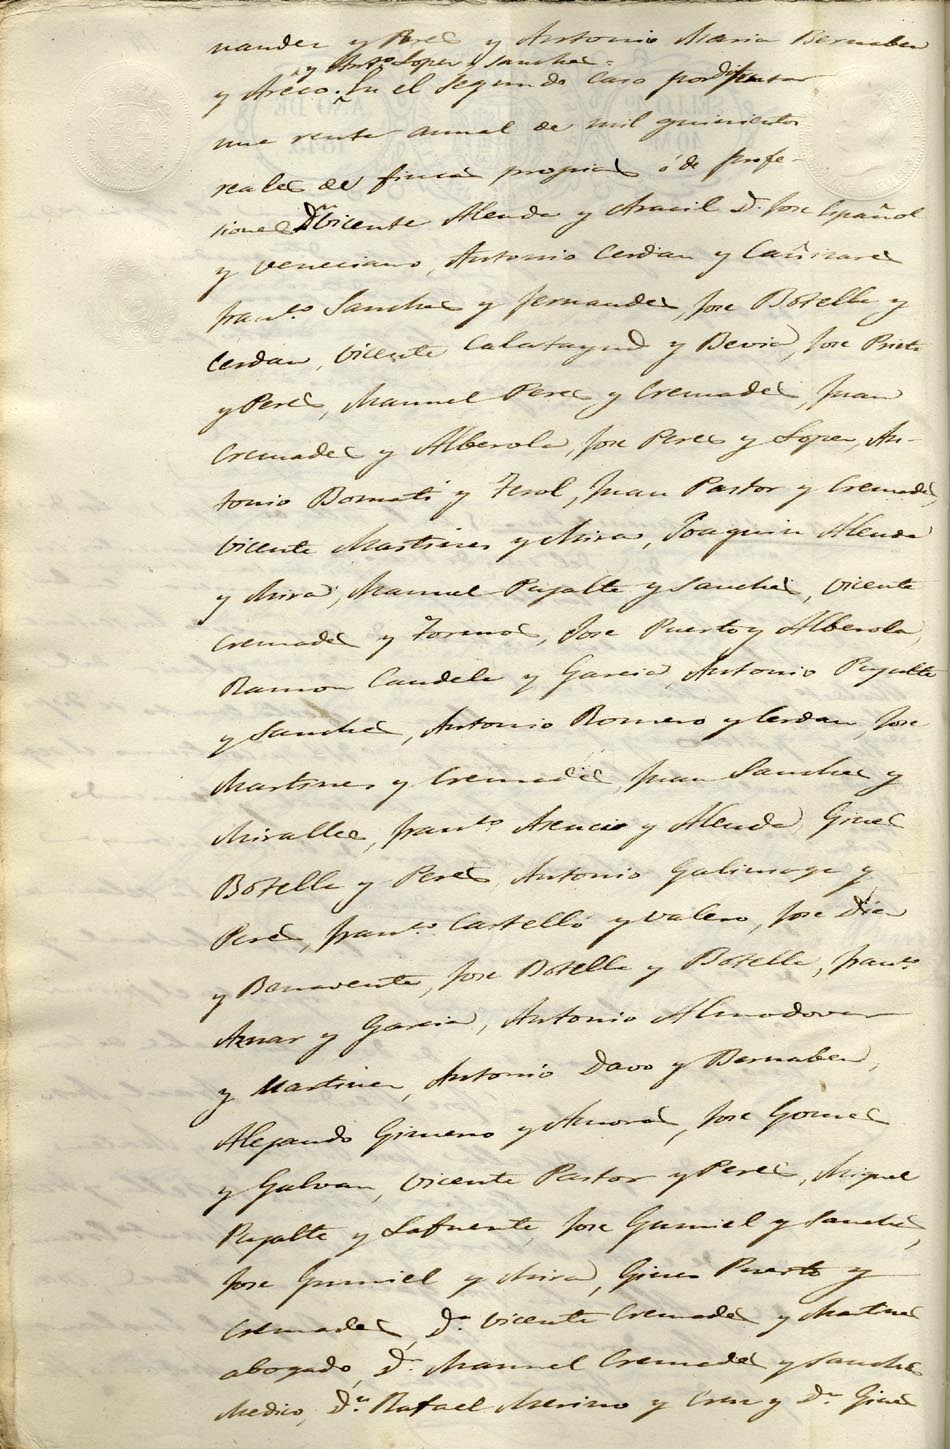 nandez y Perez y Antonio Maria Bernabeu
y Antº Lopez y Sanchez =
y Azeco. En el segundo caso por disfrutar
una renta anual de mil quinientos
reales de fincas propias ó de profe-
siones Dn Vicente Alenda y Aracil D. Jose Español
y Veneciano, Antonio Cerdan y Cañizares
Franco Sanchez y Fernandez, Jose Botella y
Cerdan, Vicente Calatayud y Bevia, Jose Prieto
y Perez, Manuel Perez y Cremades, Juan
Cremades y Alberola, Jose Perez y Lopez, An-
tonio Bornati y Terol, Juan Pastor y Cremades,
Vicente Martinez y Mira, Joaquin Alenda
y Mira, Manuel Pujalte y Sanchez, Vicente
Cremades y Tormos, Jose Puerto y Alberola,
Ramon Candela y Garcia, Antonio Pujalte
y Sanchez, Antonio Romero y Cerdan, Jose
Martinez y Cremades, Juan Sanchez y
Miralles, Franco Asencio y Alenda, Gines
Botella y Perez, Antonio Galinsoga y
Perez, Franco Castelló y Valero, Jose Diez
y Benavente, Jose Botella y Botella, Franco
Aznar y Garcia, Antonio Almodovar
y Martinez, Antonio Davo y Bernabeu,
Alejandro Gimeno y Amoros, Jose Gomez
y Galvan, Vicente Pastor y Perez, Miguel
Pujalte y Lafuente, Jose Gumiel y Sanchez,
Jose Gumiel y Mira, Gines Puerto y
Cremades, Dn Vicente Cremades y Martinez
abogado, Dn Manuel Cremades y Sanchez
Medico, Dn Rafael Merino y Cruz y Dn Gines